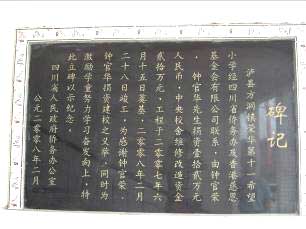 碑记
泸县方洞镇荣华第十一希望
小学经四川省侨务办及香港慈恩
基金会有限公司联系,由钟官荣
、钟官华先生捐资壹拾贰万元
人民币,中央校舍维修改造资金
贰拾万元,工程于二〇〇七年六
月十五日奠基,二〇〇八年二月
二十八日竣工。为感谢钟官荣、
钟官华捐资建校之义举,同时为
激励学童努力学习奋发向上,特
此立碑以示纪念。
四川省人民政府侨务办公室
公元二〇〇八年二月